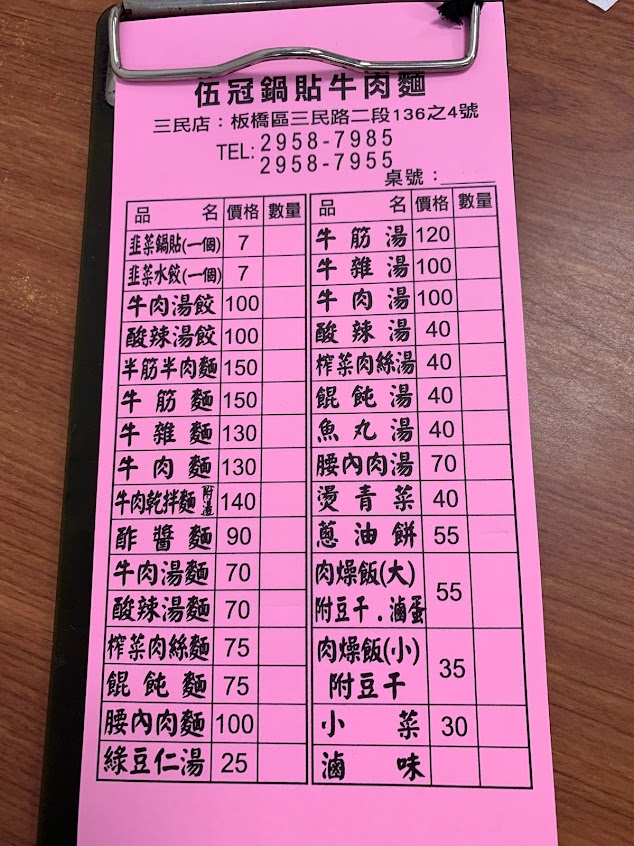 伍冠鍋貼牛肉麵
三民店：板橋區三民路二段136之4號
TEL: 2958-7985
2958-7955
桌號：
品 名 價格 數量
韭菜鍋貼(一個) 7
韭菜水餃(一個) 7
牛肉湯餃 100
酸辣湯餃 100
半筋半肉麵 150
牛筋麵 150
牛雜麵 130
牛肉麵 130
牛肉乾拌麵 附湯 140
酢醬麵 90
牛肉湯麵 70
酸辣湯麵 70
榨菜肉絲麵 75
餛飩麵 75
腰內肉麵 100
綠豆仁湯 25
品 名 價格 數量
牛筋湯 120
牛雜湯 100
牛肉湯 100
酸辣湯 40
榨菜肉絲湯 40
餛飩湯 40
魚丸湯 40
腰內肉湯 70
燙青菜 40
蔥油餅 55
肉燥飯(大) 55
附豆干．滷蛋
肉燥飯(小) 35
附豆干
小菜 30
滷味